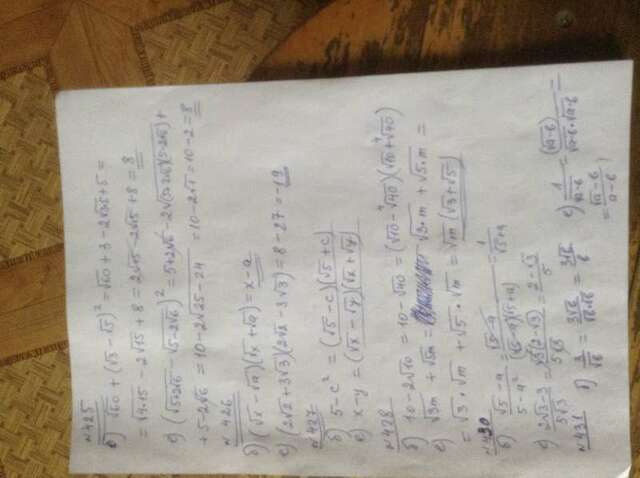 №425
б) √60 + (√3 − √5)² = √60 + 3 − 2√3·5 + 5 =
= √4·15 − 2√15 + 8 = 2√15 − 2√15 + 8 = 8
е) (√5+2√6 − √5−2√6)² = 5+2√6 − 2√(5+2√6)(5−2√6) +
+ 5−2√6 = 10−2√25−24 = 10−2√1 = 10−2 = 8
№426
б) (√x − √a)(√x + √a) = x−a
е) (2√2 + 3√3)(2√2 − 3√3) = 8 − 27 = −19
№427
б) 5 − c² = (√5 − c)(√5 + c)
е) x − y = (√x − √y)(√x + √y)
№428
б) 10 − 2√10 = 10 − √40 = (√10 − ⁴√40)(√10 + ⁴√40)
е) √3m + √5m = √3·m + √5·m =
= √3·√m + √5·√m = √m(√3+√5)
№430
б) √5−a / 5−a² = √5−a / (√5−a)(√5+a) = 1 / √5+a
е) 2√3−3 / 5√3 = √3(2−√3) / 5√3 = 2−√3 / 5
№431 б) 3 / √b = 3√b / √b·√b = 3√b / b е) 1 / √a−b = (√a−b) / √a−b·√a−b =
= √a−b / a−b